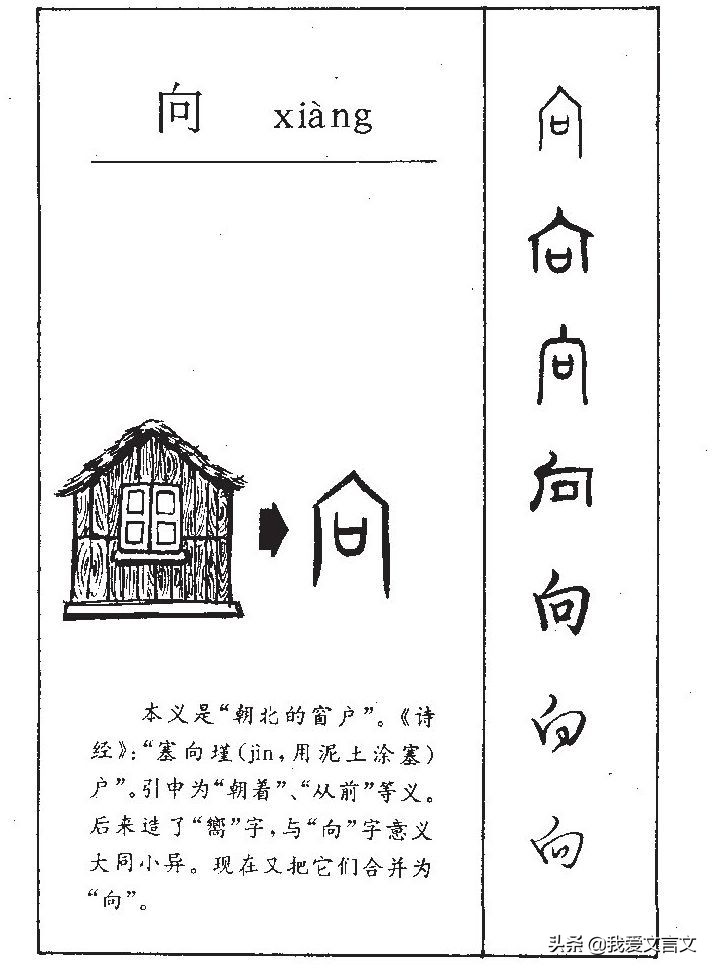 向 xiàng
本义是“朝北的窗户”。《诗
经》:“塞向瑾(jìn,用泥土涂塞)
户”。引申为“朝着”、“从前”等义。
后来造了“嚮”字,与“向”字意义
大同小异。现在又把它们合并为
“向”。
向
向
向
向
向
向
向
向
头条 @我爱文言文